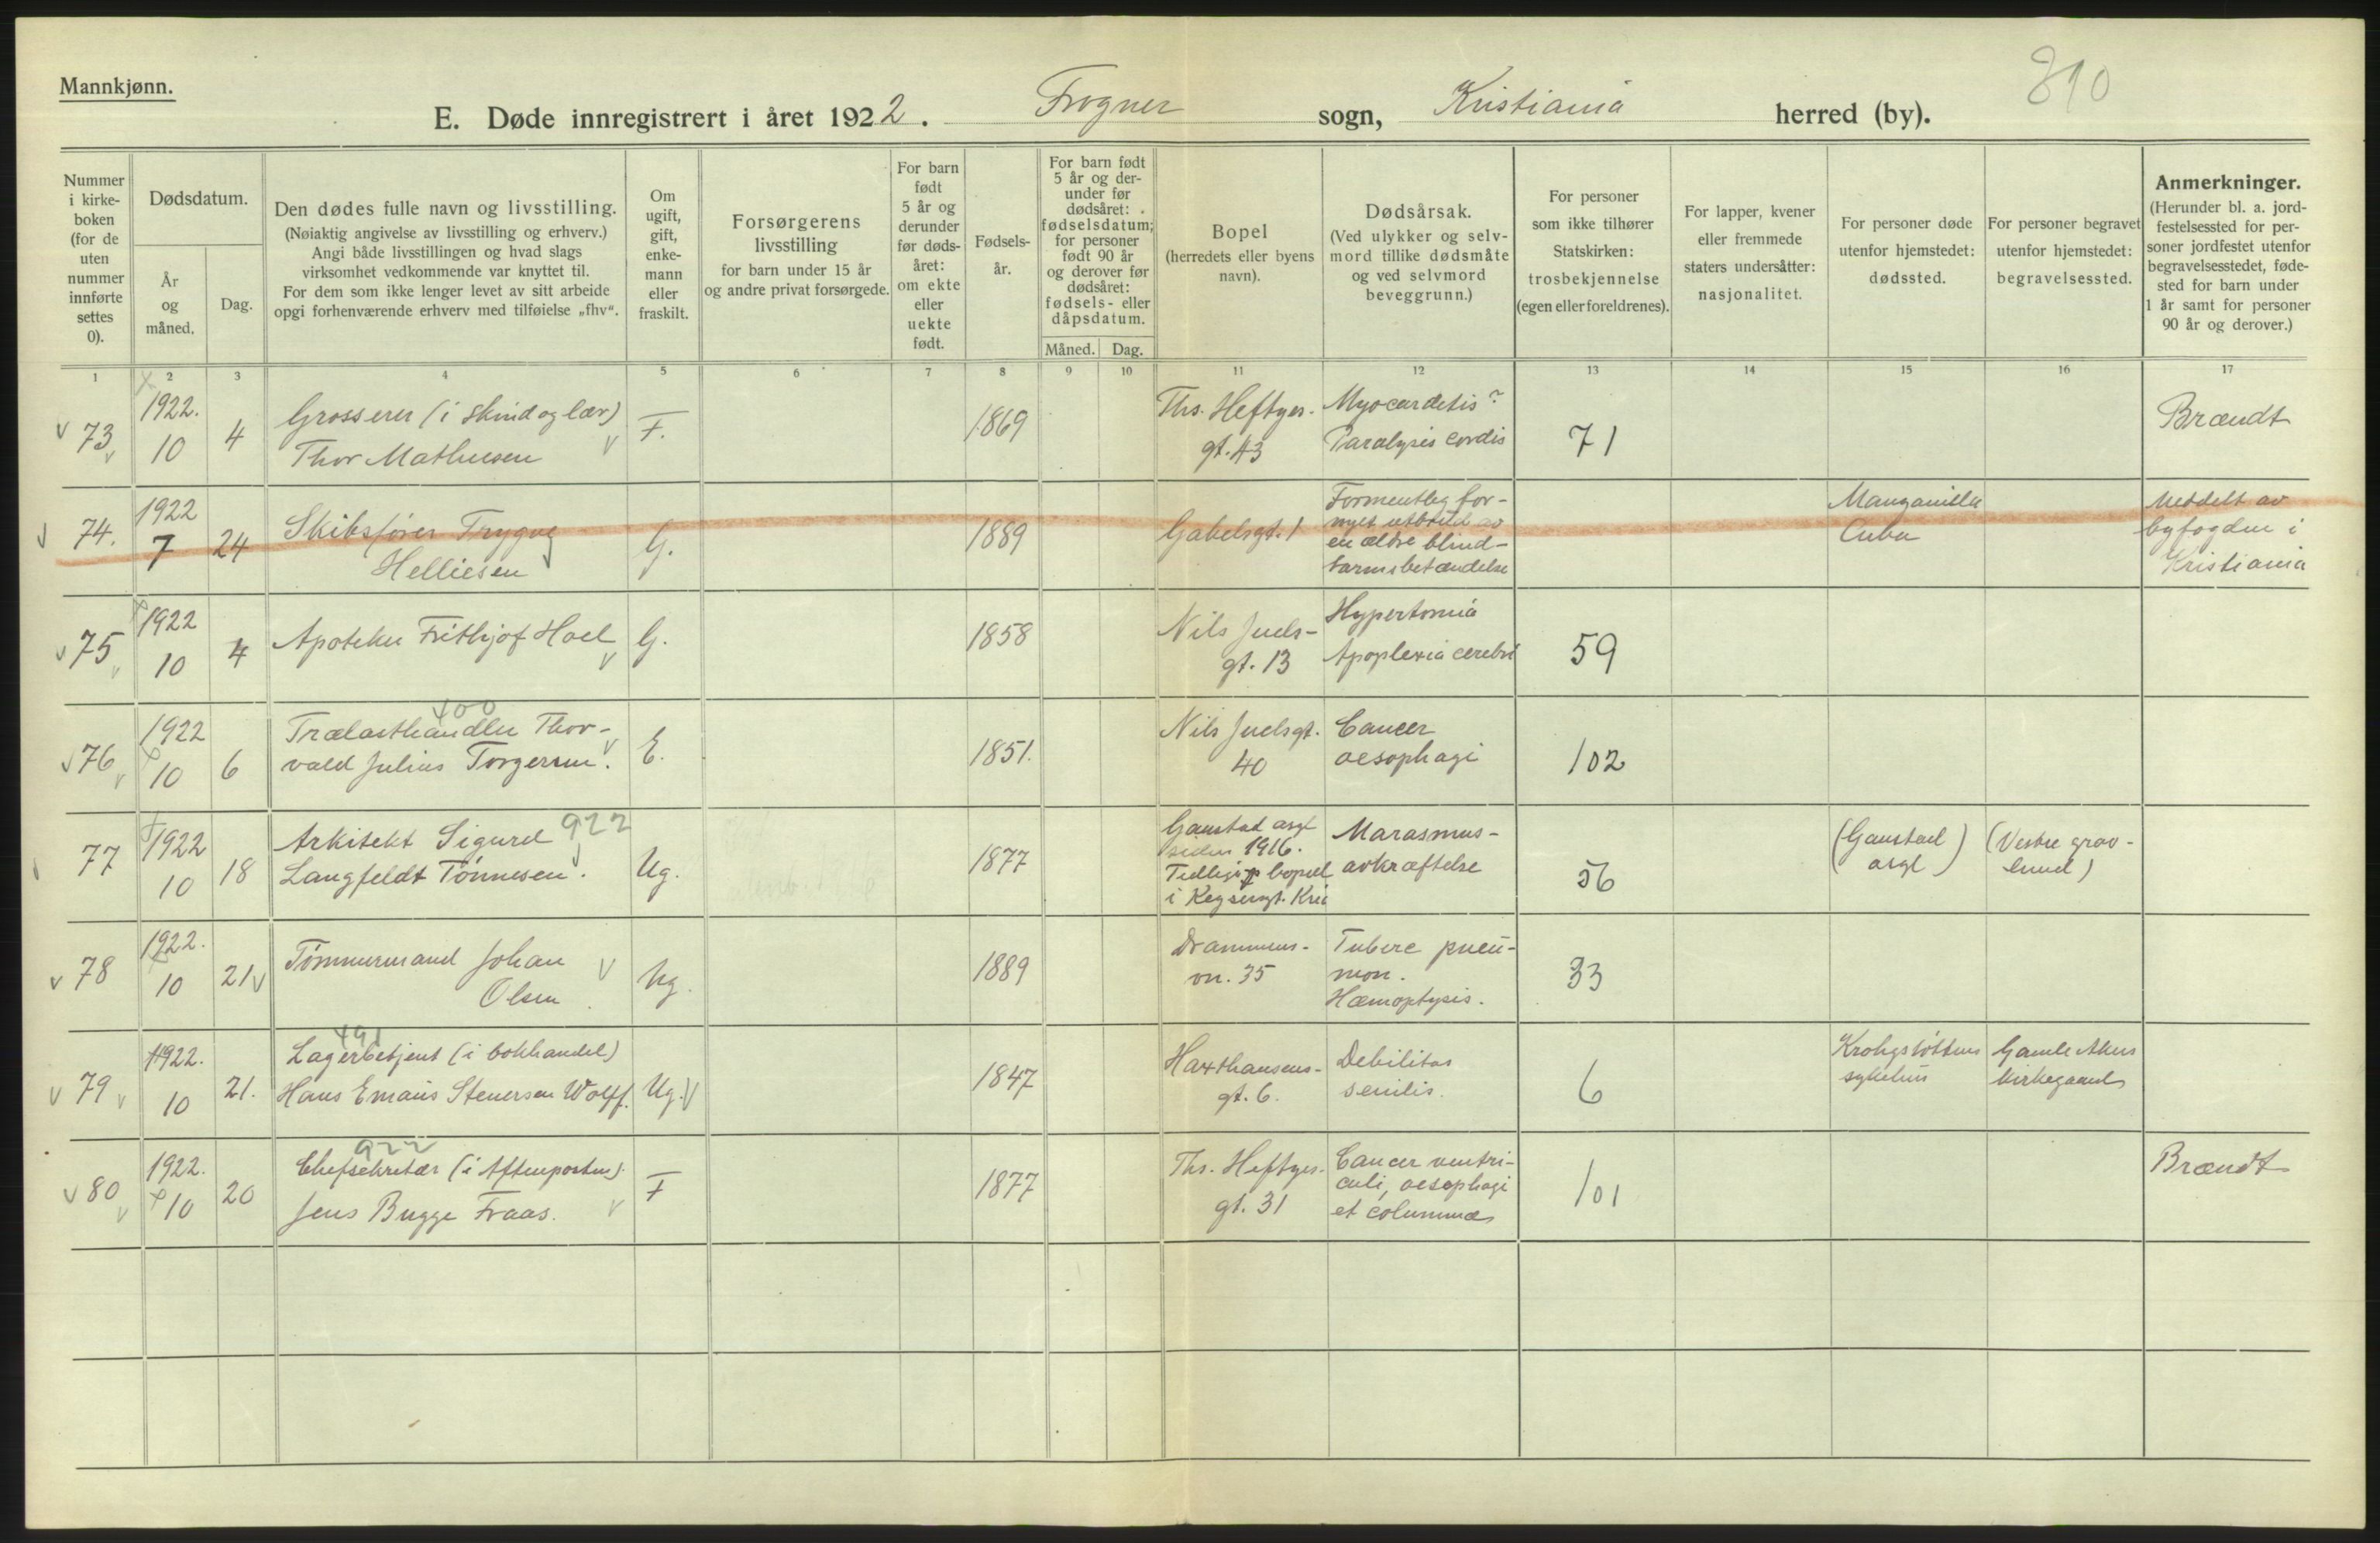 Mannkjønn.
E. Døde innregistrert i året 1922. Frogner sogn, Kristiania herred (by).
890
Nummer i kirke- boken (for de uten nummer innførte settes 0).
Dødsdatum.
År og måned.
Dag.
Den dødes fulle navn og livsstilling.
(Nøiaktig angivelse av livsstilling og erhverv.)
Angi både livsstillingen og hvad slags
virksomhet vedkommende var knyttet til.
For dem som ikke lenger levet av sitt arbeide
opgi forhenværende erhverv med tilføielse „fhv“.
Om ugift, gift, enke- mann eller fraskilt.
Forsørgerens livsstilling
for barn under 15 år
og andre privat forsørgede.
For barn født 5 år og derunder før døds- året: om ekte eller uekte født.
Fødsels- år.
For barn født 5 år og der- under før dødsåret: fødselsdatum; for personer født 90 år og derover før dødsåret: fødsels- eller dåpsdatum.
Måned. Dag.
Bopel
(herredets eller byens navn).
Dødsårsak.
(Ved ulykker og selv-
mord tillike dødsmåte
og ved selvmord
beveggrunn.)
For personer
som ikke tilhører
Statskirken:
trosbekjennelse
(egen eller foreldrenes).
For lapper, kvener
eller fremmede
staters undersåtter:
nasjonalitet.
For personer døde
utenfor hjemstedet:
dødssted.
For personer begravet
utenfor hjemstedet:
begravelsessted.
Anmerkninger.
(Herunder bl. a. jord-
festelsessted for per-
soner jordfestet utenfor
begravelsesstedet, føde-
sted for barn under
1 år samt for personer
90 år og derover.)
1 2 3 4 5 6 7 8 9 10 11 12 13 14 15 16 17
73 1922. 10 4
Grosserer (i skind og lær)
Thor Mathiesen
F. 1869
Ths. Heftyes-
gt. 43
Myocarditis?
Paralysis cordis
71
Brændt
74. 1922 7 24
Skibsfører Trygve
Helliesen
G. 1889
Gabelsgt. 1
Formentlig for-
nyet utbrud av
en ældre blind-
tarmsbetændelse
Manzanilla
Cuba
Meddelt av
byfogden i
Kristiania
75 1922 10 4
Apoteker Frithjof Hoel
G. 1858
Nils Juels-
gt. 13
Hypertonia
Apoplexia cerebri
59
76 1922 10 6
400
Trælasthandler Thor-
vald Julius Torgersen.
E. 1851.
Nils Juelsgt.
40
Cancer
oesophagi
102
77 1922 10 18
922
Arkitekt Sigurd
Langfeldt Tönnesen.
Ug. 1877
Gaustad asyl
siden 1916.
Tidligere bopæl
i Keysersgt. Kria
Marasmus-
avkræftelse
56
(Gaustad
asyl)
(Vestre grav-
lund)
78 1922. 10 21
Tömmermand Johan
Olsen
Ug. 1889
Drammens-
vn. 35
Tuberc pneu-
mon.
Hæmoptysis.
33
79 1922. 10 21.
491
Lagerbetjent (i bokhandel)
Hans Emaus Stenersen Wolff.
Ug. 1847
Haxthausens-
gt. 6.
Debilitas
senilis.
6
Krohgstöttens
sykehus
Gamle Akers
kirkegaard
80 1922. 10 20
922
Chefsekretær (i Aftenposten)
Jens Bugge Fraas.
F 1877
Ths. Heftyes-
gt. 31
Cancer ventri-
culi, oesophagi
et columnæ
101
Brændt